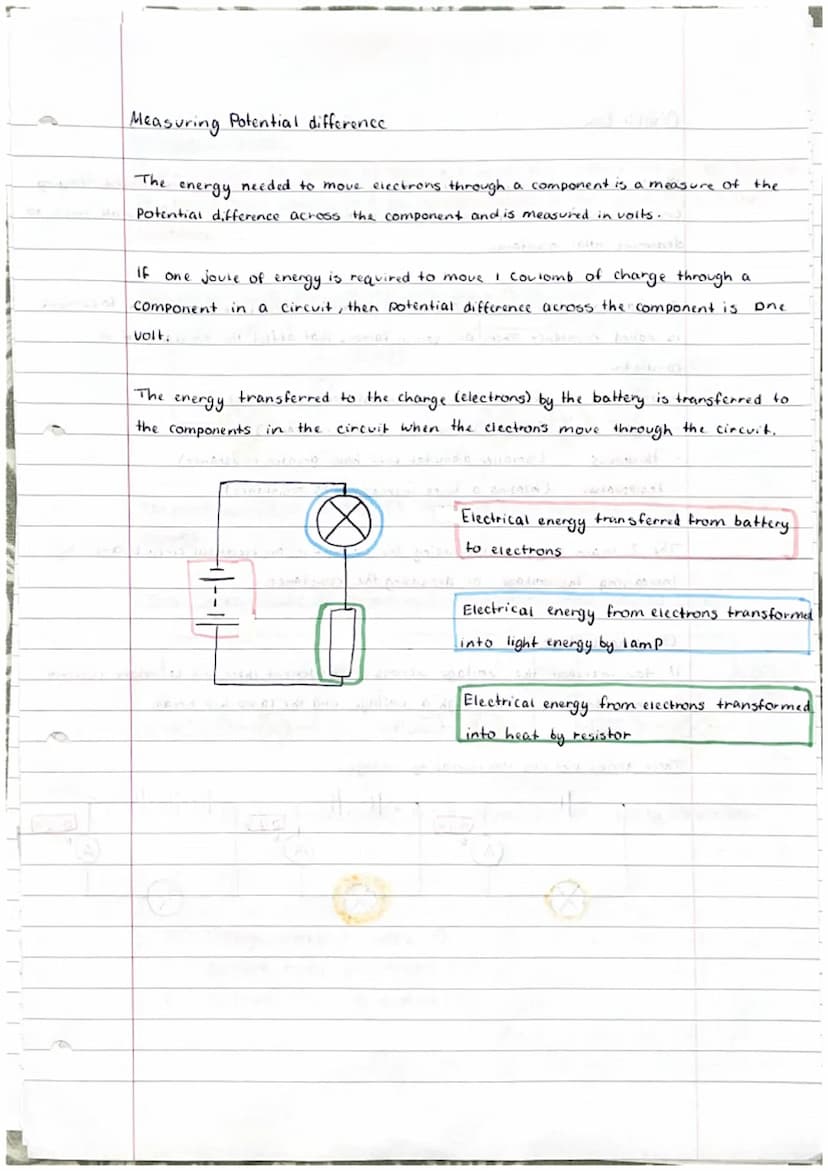 Measuring Potential difference
The energy needed to move electrons through a component is a measure of the
Potential difference across the component and is measured in volts.
If one joule of energy is required to move 1 Coulomb of charge through a
component in a circuit, then potential difference across the component is one
volt.
The energy transferred to the charge (electrons) by the battery is transferred to
the components in the circuit when the electrons move through the circuit.
Electrical energy transferred from battery
to electrons
Electrical energy from electrons transformed
into light energy by lamp
Electrical energy from electrons transformed
into heat by resistor